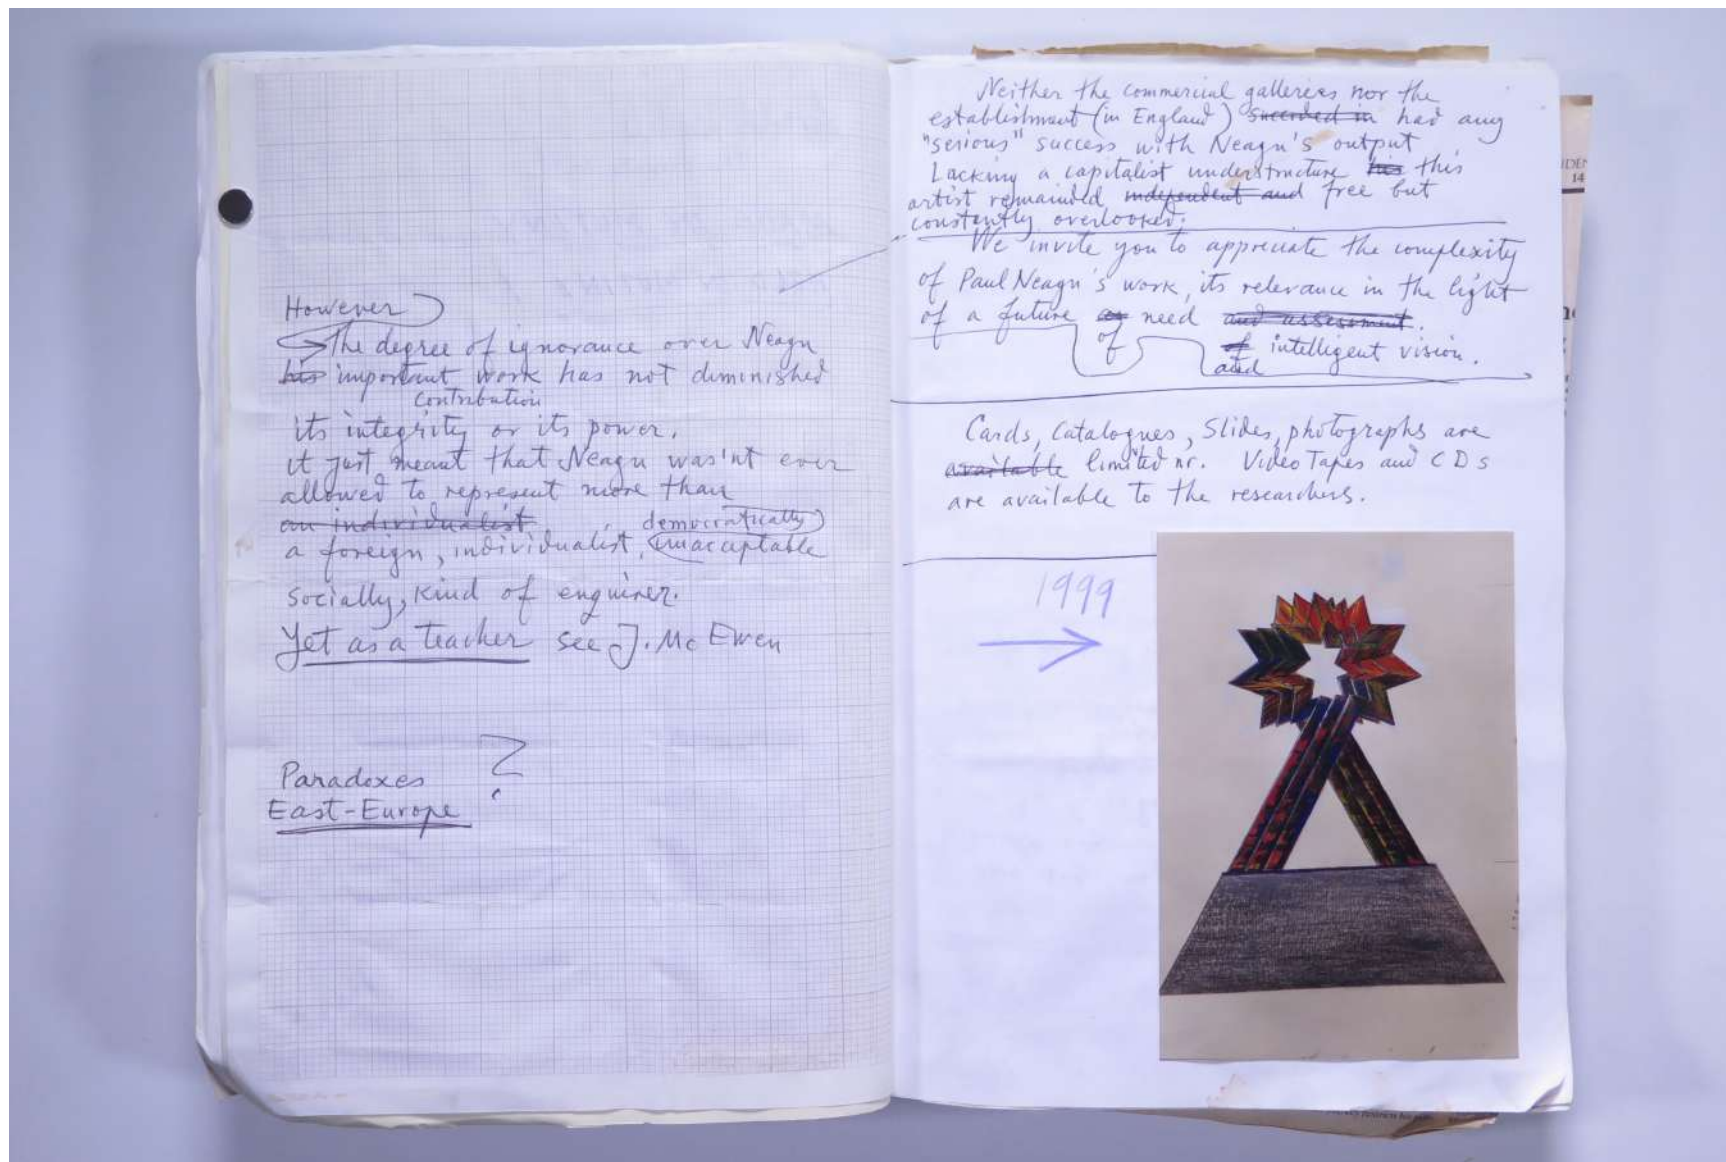 However
The degree of ignorance over Neagu
his important work has not diminished
contribution
its integrity or its power.
it just meant that Neagu was'nt ever
allowed to represent more than
an individualist democratically
a foreign, individualist, unacceptable
socially, kind of enquirer.
Yet as a teacher see J. Mc Ewen
Paradoxes ?
East-Europe
Neither the commercial galleries nor the
establishment (in England) succeeded in had any
"serious" success with Neagu's output
Lacking a capitalist understructure his this
artist remainded independent and free but
constently overlooked.
We invite you to appreciate the complexity
of Paul Neagu's work, its relevance in the light
of a future need and assessment.
of of intelligent vision.
and
Cards, Catalogues, Slides, photographs are
available limited nr. Video Tapes and CDs
are available to the researchers.
1999
14